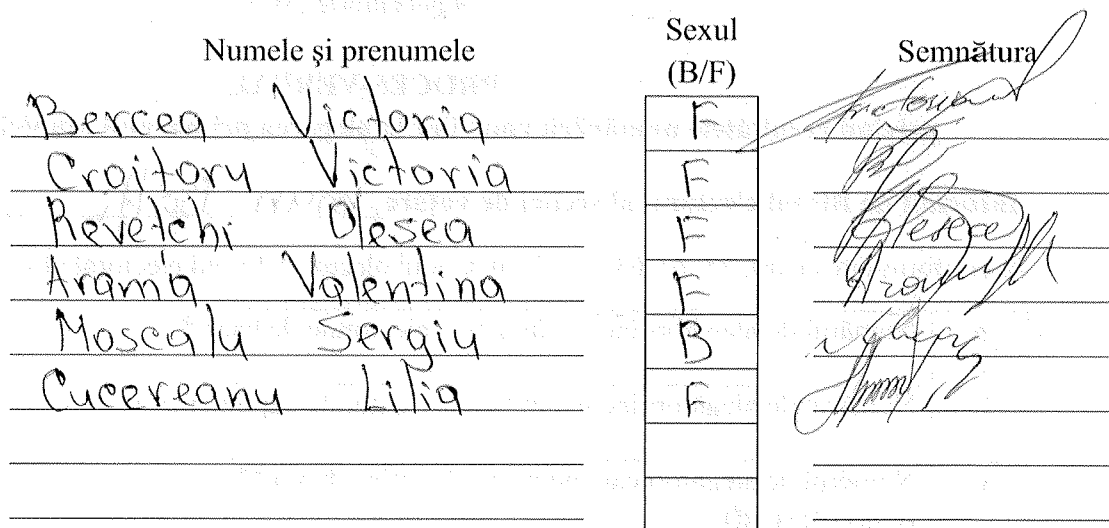 Numele și prenumele Sexul (B/F) Semnătura
Bercea Victoria F
Croitoru Victoria F
Revetchi Olesea F Olesea
Aramă Valentina F
Moscalu Sergiu B
Cucereanu Lilia F